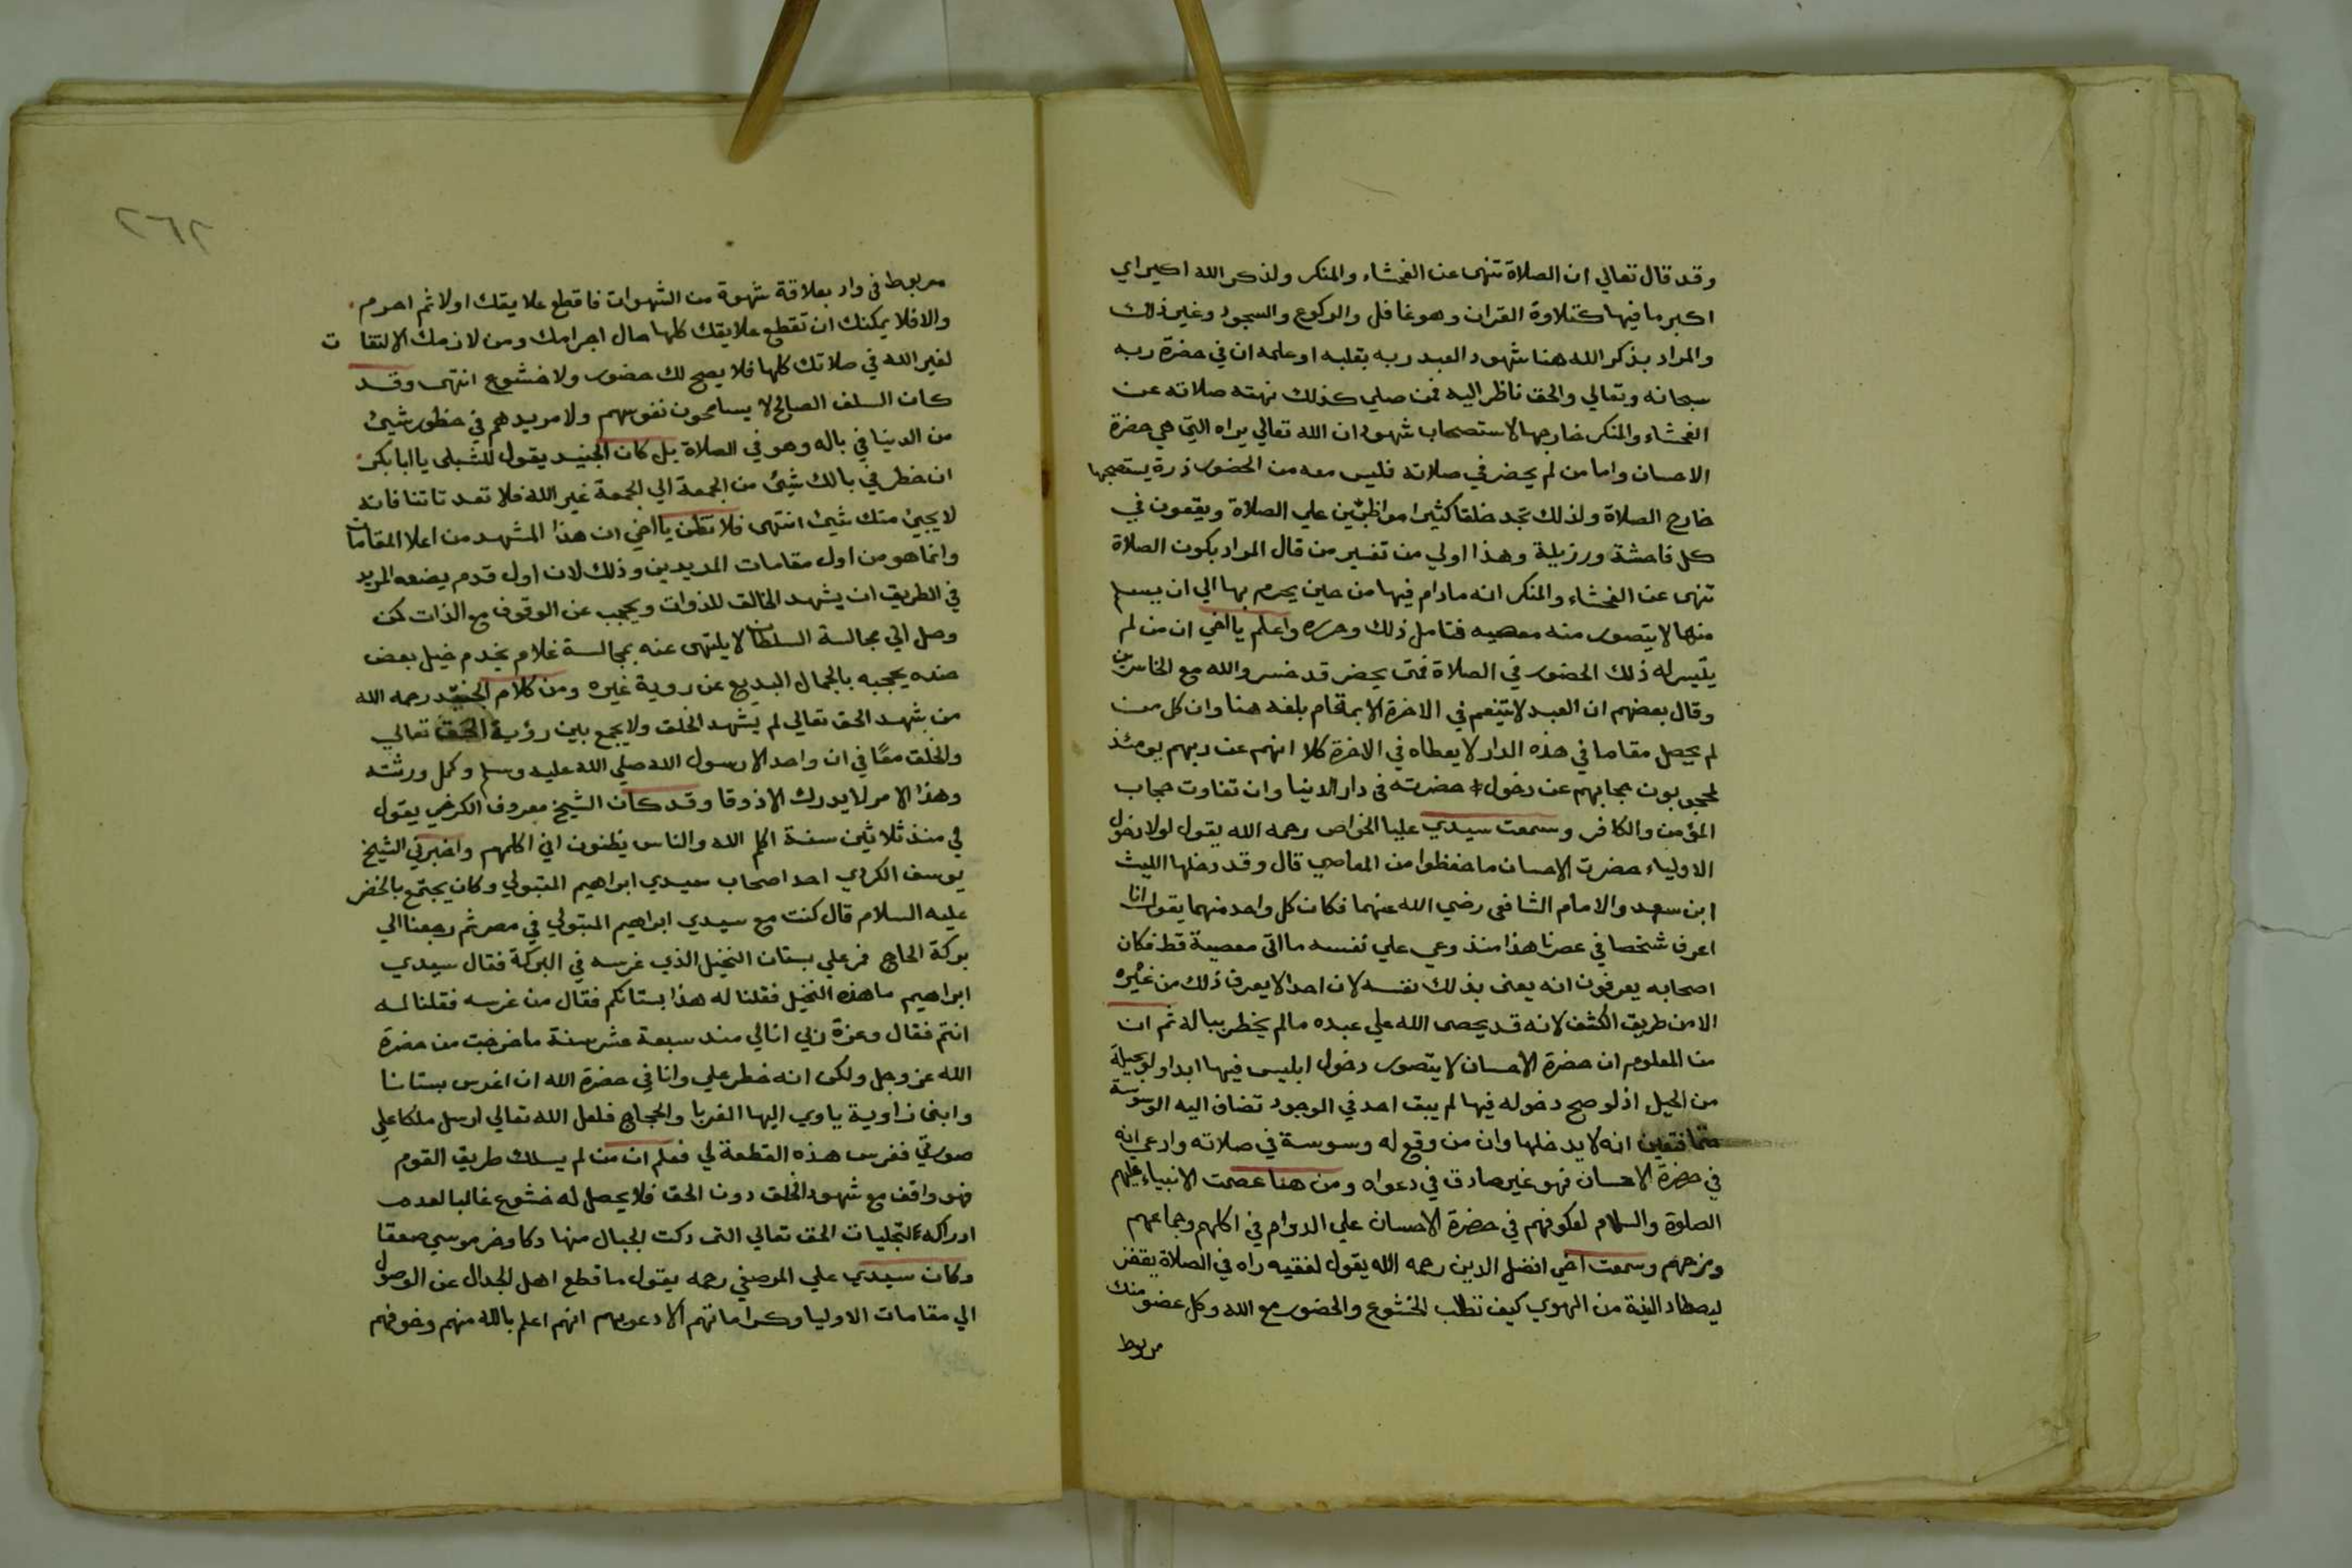 وقد قال تعالي ان الصلاة تنهى عن الفحشاء والمنكر ولذكر الله اكبر اي
اكبر ما فيها كتلاوة القران وهو غافل والركوع والسجود وغير ذلك
والمراد بذكر الله هنا شهود العبد ربه بقلبه او علمه ان في حضرة ربه
سبحانه وتعالي والحق ناظر اليه فمن صلي كذلك نهته صلاته عن
الفحشاء والمنكر خارجها لاستصحاب شهود ان الله تعالي يراه التي هي حضرة
الاحسان واما من لم يحضر في صلاته فليس معه من الحضور ذرة يستصحبها
خارج الصلاة ولذلك تجد خلقا كثيرا مواظبين علي الصلاة ويقعون في
كل فاحشة ورزيلة وهذا اولي من تفسير من قال المراد بكون الصلاة
تنهى عن الفحشاء والمنكر انه مادام فيها من حين يحرم بها الي ان يسلم
منها لا يتصور منه معصيه فتامل ذلك وحرره واعلم يا اخي ان من لم
يتيسر له ذلك الحضور في الصلاة فمتى يحضر قد خسر والله مع الخاسرين
وقال بعضهم ان العبد لا يتنعم في الاخرة الا بمقام بلغه هنا وان كل من
لم يحصل مقاما في هذه الدار لا يعطاه في الاخرة كلا انهم عن ربهم يومئذ
لمحجوبون حجابهم عن دخول حضرته في دار الدنيا وان تفاوت حجاب
المؤمن والكافر وسمعت سيدي عليا الخواص رحمه الله يقول لولا دخول
الاولياء حضرت الاحسان ما حفظوا من المعاصي قال وقد دخلها الليث
ابن سعد والامام الشافعي رضي الله عنهما فكان كل واحد منهما يقول انا
اعرف شخصا في عصرنا هذا منذ وعي علي نفسه ما اتى معصية قط فكان
اصحابه يعرفون انه يعنى بذلك نفسه لان احدا لا يعرف ذلك من غيره
الا من طريق الكشف لانه قد يحصى الله علي عبده مالم يخطر بباله ثم ان
من المعلوم ان حضرة الاحسان لا يتصور دخول ابليس فيها ابدا ولو بحيلة
من الحيل اذ لو صح دخوله فيها لم يبق احد في الوجود تضاف اليه الوسوسة
انه لا يدخلها وان من وقع له وسوسة في صلاته وادعي انه
في حضرة الاحسان فهو غير صادق في دعواه ومن هنا عصمت الانبياء عليهم
الصلوة والسلام لعكوفهم في حضرة الاحسان علي الدوام في اكلهم وجماعهم
ومزحهم وسمعت اخي افضل الدين رحمه الله يقول لفقيه راه في الصلاة يقفز
ليصطاد من الهوي كيف تطلب الخشوع والحضور مع الله وكل عضو منك
مربوط
٢٦٢
مربوط في واد بعلاقة شهوة من الشهوات فاقطع علايقك اولا ثم احرم
والا فلا يمكنك ان تقطع علايقك كلها حال احرامك ومن لازمك الالتفات
لغير الله في صلاتك كلها فلا يصح لك حضور ولا خشوع انتهى وقد
كان السلف الصالح لا يسامحون نفوسهم ولا مريدهم في خطور شيئ
من الدنيا في باله وهو في الصلاة بل كان الجنيد يقول للشبلي يا ابا بكر
ان خطر في بالك شيئ من الجمعة الي الجمعة غير الله فلا تعد تاتنا فانه
لا يجيئ منك شيئ انتهى فلا تظن يا اخي ان هذا المشهد من اعلا المقامات
وانما هو من اول مقامات المريدين وذلك لان اول قدم يضعه المريد
في الطريق ان يشهد الخالق للذوات ويحجب عن الوقوف مع الذات كمن
وصل الي مجالسة السلطان لا يلتهى عنه بمجالسة غلام يخدم خيل بعض
جنده يحجبه بالجمال البديع عن روية غيره ومن كلام الجنيد رحمه الله
من شهد الحق تعالي لم يشهد الخلق ولا يجمع بين رؤية الحق تعالي
والخلق معًا في ان واحد الا رسول الله صلي الله عليه وسلم وكمل ورثته
وهذا الامر لا يدرك الا ذوقا وقد كان الشيخ معروف الكرخي يقول
لي منذ ثلاثين سنة اكلم الله والناس يظنون اني اكلمهم واخبرني الشيخ
يوسف الكردي احد اصحاب سيدي ابراهيم المتبولي وكان يجتمع بالخضر
عليه السلام قال كنت مع سيدي ابراهيم المتبولي في مصر ثم رجعنا الي
بركة الحاج فمر علي بستان النخيل الذي غرسه في البركة فقال سيدي
ابراهيم ما هذه النخيل فقلنا له هذا بستانكم فقال من غرسه فقلنا له
انتم فقال وعزة ربي انا لي منذ سبعة عشر سنة ما خرجت من حضرة
الله عز وجل ولكن انه خطر علي وانا في حضرة الله ان اغرس بستانا
وابنى زاوية ياوي اليها الغربا والحجاج فلعل الله تعالي ارسل ملكا علي
صورتي فغرس هذه القطعة لي فعلم ان من لم يسلك طريق القوم
فهو واقف مع شهود الخلق دون الحق فلا يحصل له خشوع غالبا لعدم
ادراكه لتجليات الحق تعالي التى دكت الجبال منها دكا وخر موسي صعقا
وكان سيدي علي المرصفي رحمه يقول ما قطع اهل الجدال عن الوصول
الي مقامات الاوليا وكراماتهم الا دعويهم انهم اعلم بالله منهم وخوفهم